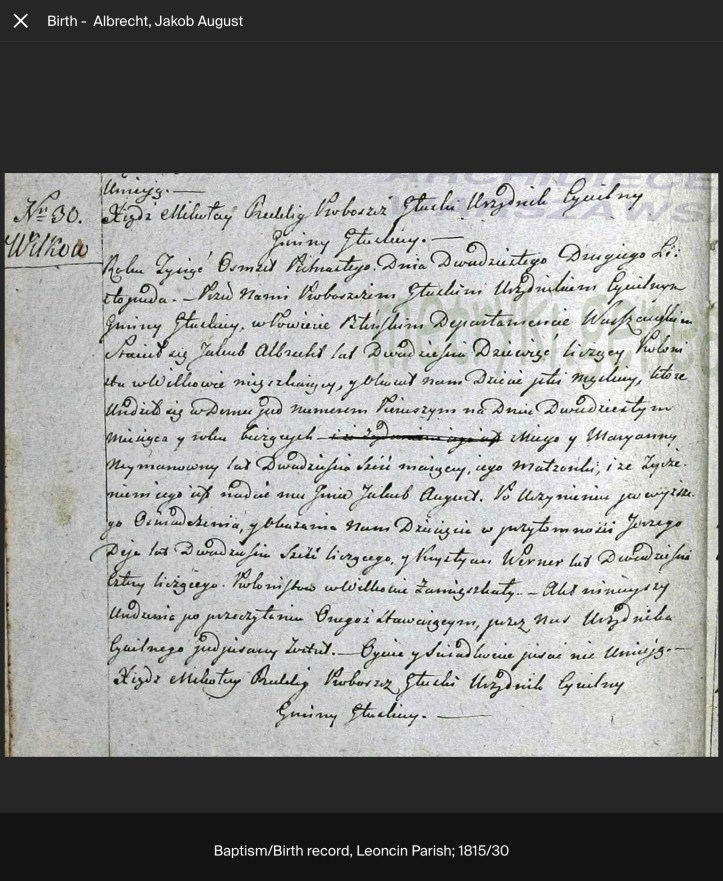 Birth - Albrecht, Jakob August
ARCHIDIECE
WARSZAWS
Umieją.—
Nr 30. Xiądz Mikołay Proboszcz Głuski Urzędnik Cywilny
Wilkow Gminy Głuskiey.—
Roku Tysiąć Osmset Pietnastego. Dnia Dwudziestego Drugiego Li:
stopada.— Przed Nami Proboszczem Głuskim Urzędnikiem Cywilnym
Gminy Głuskiey, w Powiecie Departamencie Warszawskim
Stawił się Jakub Albrecht lat Dwadziescia Dziewięć liczący Koloni
sta w Wilkowie mieszkaiący, y okazał nam Dziecie płci męskiey, ktore
Urodziło się w Domu pod numerem Pierwszym na Dniu Dwudziestym
miesiąca y roku bieżących Niego y Maryanny
Neymanowny lat Dwadziescia Sześć maiącey, iego małżonki, i że życze:
niem iego iest nadać mu Jmie Jakub August. Po Uczynieniu powyższe
go Oswiadczenia, y Okazania Nam Dziecięcia w przytomności Jerzego
Deja lat Dwadziescia Sześć liczącego, y Krystyan Werner lat Dwadziescia
Cztery liczącego. Kolonistow w Wilkowie Zamięszkały.— Akt ninieyszy
Urodzenia po przeczytaniu Onegoż stawaiącym, przez Nas Urzędnika
Cywilnego podpisany Został.— Oyciec y Swiadkowie pisać nie Umieją.—
Xiądz Mikołay Proboszcz Głuski Urzędnik Cywilny
Gminy Głuskiey.—
Baptism/Birth record, Leoncin Parish; 1815/30